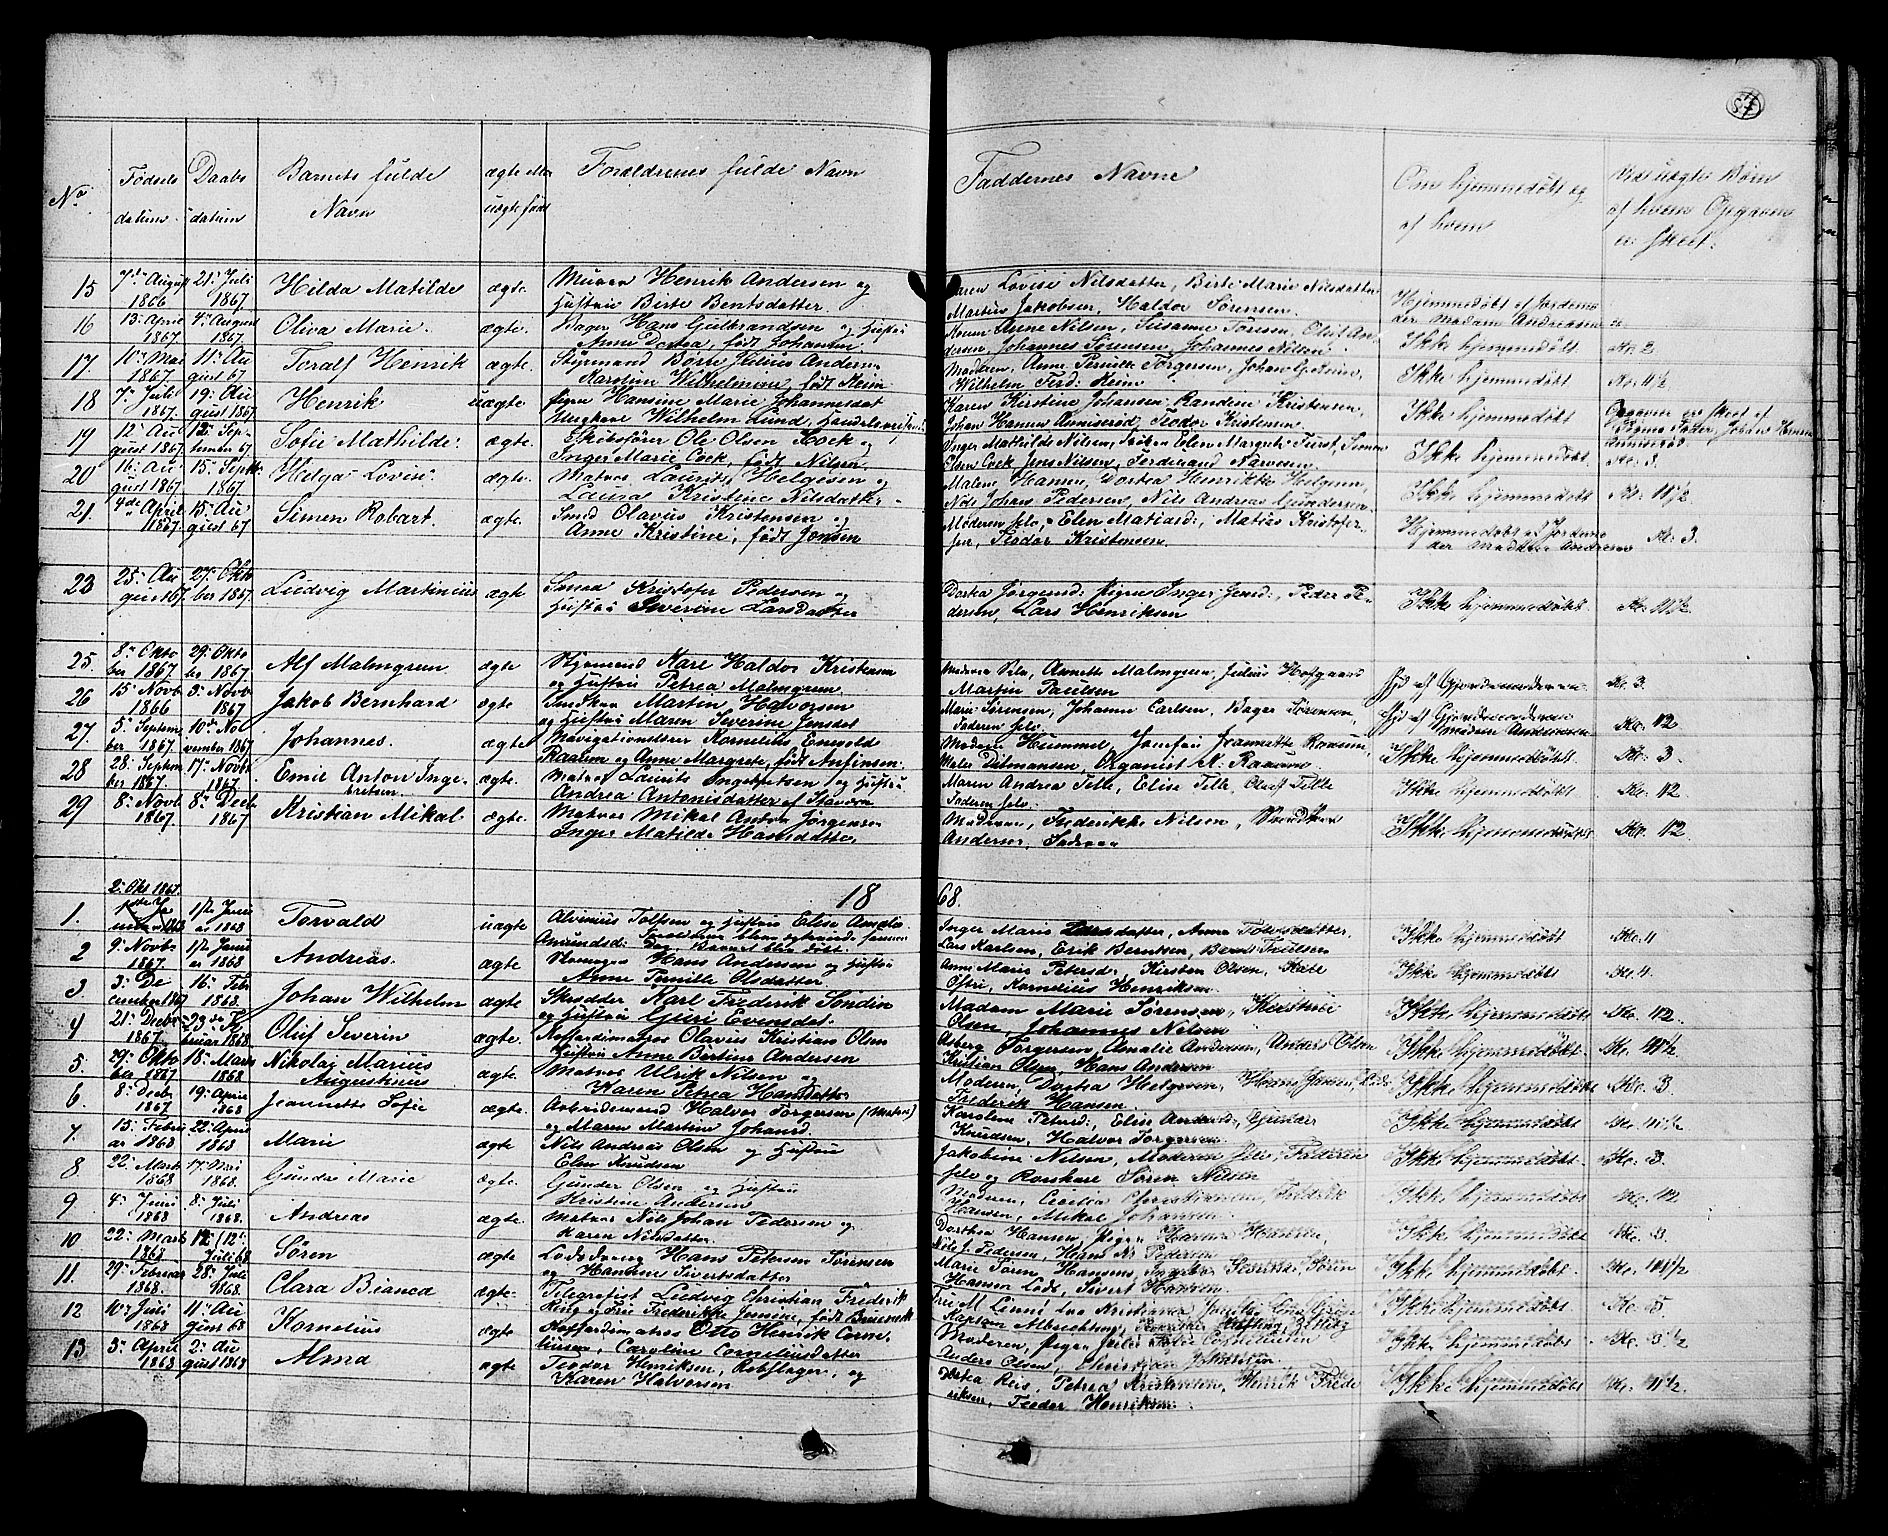 57
No
Fødsels datum
Daabs datum
Barnets fulde Navn
ægte eller uægte født
Forældrenes fulde Navn
Faddernes Navne
Om hjemmedøbt og af hvem
Ved uægte Børn af hvem Opgaven er skeet.
15 7de August 1866 21. Juli 1867. Hilda Matilde ægte. Murer Henrik Andersen og
Hustru Birte Bentsdatter.
Karen Lovise Nilsdatter, Birte Marie Nilsdatter
Martin Jakobsen, Haldor Sørensen.
Hjemmedøbt af Jordemoder Madam Andreasen
16 13. April 1867. 4. August 1867. Oliva Marie. ægte. Bager Hans Gulbrandsen og Hustru
Anne Dortea, født Johansen
Anne Nilsen, Susanne Sørensen, Oluf Andersen, Johannes Sørensen, Johannes Nilsen
Ikke hjemmedøbt Kl. 2
17. 10. Mai 1867. 11. August 67 Toralf Henrik ægte. Styrmand Børre Julius Andersen
Karoline Wilhelmine, født Heim
Moderen, Anne Pernille Torgersen, Johan
Wilhelm Ferd. Heim
Ikke hjemmedøbt Kl. 11½
18 7. Juli 1867. 19. August 1867. Henrik uægte Pigen Hansine Marie Johannesdat
Ungkarl Wilhelm Lund, Handels
Karen Kirstine Johansen, Randine Kristensen,
Johan Hansen, Teodor Kristensen.
Ikke hjemmedøbt
Opgaven er skeet af Pigens Fatter, Johan Hansen
19 12. August 1867. 12. September 67 Sofie Mathilde. ægte. Skibsfører Ole Olsen Cock og
Inger Marie Cock, født Nilsen
Inger Mathilde Nilsen, Elen Margrete Furst, Simon
Olsen Cock, Jens Nilsen, Ferdinand Narvesen.
Ikke hjemmedøbt. Kl. 3.
20 16. August 1867. 15. Septbr. 1867. Helga Lovise. ægte. Matros Laurits Helgesen og
Laura Kristine Nilsdatter
Malene Hansen, Dortea Henrikke Helgesen,
Nils Johan Pedersen, Nils Andreas Gundersen
Ikke hjemmedøbt Kl. 11½
21. 4de April 1867. 15. August 67 Simen Robart. ægte. Smed Olavus Kristensen og
Anne Kristine, født Jonsen
Moderen selv, Elen Matiasd., Matias Kristofersen, Teodor Kristensen.
Hjemmedøbt af Jordemoder Madam Andresen Kl. 3.
23 25. August 67. 27. Oktober 1867. Ludvig Martinius ægte Smed Kristofer Pedersen og
Hustru Severine Larsdatter
Dortea Jørgensd. Pigen Inger Jensd., Peder Pedersen, Lars Henriksen
Ikke hjemmedøbt. Kl. 11½.
25. 8. Oktober 1867 29. Oktober 1867. Alf Malmgren ægte Styrmand Karl Haldor Kristensen
og Hustru Petrea Malmgren.
Moderen selv, Annette Malmgren, Julius Hofgaard
Martin Paulsen
Hjd af Gjordemoderen Kl. 3.
26 15. Novb 1866 3. Novb 1867 Jakob Bernhard ægte Snedker Martin Halvorsen
og Hustru Maren Severine Jonsdat
Marie Sørensen, Johanne Carlsen, Bager Sørensen,
Faderen selv.
Hjd af Gjordemoderen Madam Andresen Kl. 12
27. 5. September 1867. 10de November 1867 Johannes. ægte Navigationslærer Kornelius Enevold
Raarum og Anne Margrete, født Anfinsen.
Madam Hummel, Jomfru Jeannette Raarum,
Ditmansen, Organist A. Raarum
Ikke hjemmedøbt Kl. 3
28 28. September 1867. 17. Novbr 1867. Emil Anton Ingebretsen ægte. Matros Laurits Ingebretsen og Hustru
Andrea Antonisdatter af Stavern
Maren Andrea Telle, Elise Telle, Oluf Telle
Faderen selv.
Ikke hjemmedøbt. Kl. 12.
29 8. Novb 1867. 8. Decb. 1867 Kristian Mikal ægte. Matros Mikal Anton Jørgensen
Inger Matilde Hansdatter.
Moderen, Frederikke Nilsen,
Andersen, Faderen
Ikke hjemmedøbt Kl. 12.
1868.
1. 2. Okt 1867. 1ste Januar 1868 Torvald uægte Alvinius Tolfsen og Hustru Elise Amalie
Amundsd. Forældrene bleve ægteviede samme
Dag Barnet blev født
Inger Marie Larsdatter, Anne Tolvsdatter,
Lars Karlsen, Erik Berntsen, Bernt Paulsen
Ikke hjemmedøbt Kl. 11
2 9. Novb 1867. 1ste Januar 1868 Andreas. ægte Hans Andersen og Hustru
Anne Pernille Olsdatter
Anne Marie Petersd., Kirsten Olsen,
Kornelius Henriksen
Ikke hjemmedøbt Kl. 4.
3 3. December 1867 16. Febr 1868. Johan Wilhelm ægte Skrædder Karl Frederik Sondin
og Hustru Guri Evensdat.
Madam Marie Sørensen,
Olsen, Johannes Nilsen
Ikke hjemmedøbt Kl. 12.
4 21. Decbr 1867. 23de Februar 1868 Oluf Severin ægte. Koffardimatros Olavus Kristian Olsen
Hustru Anne Bertine Andersen
Torgersen, Amalie Andersen, Anders Olsen
Kristian Olsen, Hans Andersen
Ikke hjemmedøbt Kl. 11½.
5. 29. Oktober 1867 18. Marts 1868 Nikolaj Marius Augustinus ægte. Matros Ulrik Nilsen og
Karen Petrea Hansdatter
Moderen, Dortea Helgesen, Hans Jensen,
Frederik Hansen.
Ikke hjemmedøbt Kl. 3.
6 8. Decb 1867 19. April 1868 Jeannette Sofie ægte. Arbeidsmand Halvor Torgersen (Matros)
og Maren Martine Johansd.
Karoline Petersd., Elise Andersd., Gunder
Knudsen, Halvor Torgersen.
Ikke hjemmedøbt Kl. 11½
7. 15. Februar 1868 22. April 1868 Marie ægte Nils Andreas Olsen og Hustru
Elen Knudsen
Jakobine Nilsen, Moderen selv, Faderen
selv og Søren Nilsen
Ikke hjemmedøbt Kl. 3.
8 22. Marts 1868 17. Mai 1868. Gunda Marie ægte. Gunder Olsen og Hustru
Kristine Andersen
Moderen, Cecilia Christiansen, Frederik
Hansen, Mikal Johansen.
Ikke hjemmedøbt Kl. 12
9 4. Juni 1868 8. Juli 1868. Andreas ægte. Matros Nils Johan Pedersen og
Karen Nilsdatter.
Dorthea Hansen, Pigen Hanna Hansen,
Nils J. Pedersen, Hans N. Pedersen
Ikke hjemmedøbt Kl. 3.
10 22. Marts 1868 12. (12. Juli 68 Søren ægte Lodsdreng Hans Petersen Sørensen
og Hansine Sivertsdatter
Marie Søren, Søren
Hansen Lods, Sivert Hansen
Ikke hjemmedøbt Kl. 11½
11. 29. Februar 1868. 28. Juli 1868. Clara Bianca ægte. Telegrafist Ludvig Christian Frederik
Ring og Frue Frederikke Jensine, født
Fru M. Linné,
Kaptein Albrechtsen,
Ikke hjemmedøbt Kl. 5.
12 10. Juli 1868 11. August 68 Kornelius ægte Koffardimatros Otto Henrik Corneliussen, Caroline Corneliusdatter
Moderen, Pigen Julie Corneliussen
Anders Olsen, Christian Johansen
Ikke hjemmedøbt Kl. 3½
13 3. April 1868 2. August 1868 Alma ægte Teodor Henriksen, Rebslager, og
Karen Halvorsen
Dortea Reis, Petrea Kristensen, Henrik Frederiksen, Teodor Henriksen
Ikke hjemmedøbt Kl. 11½.